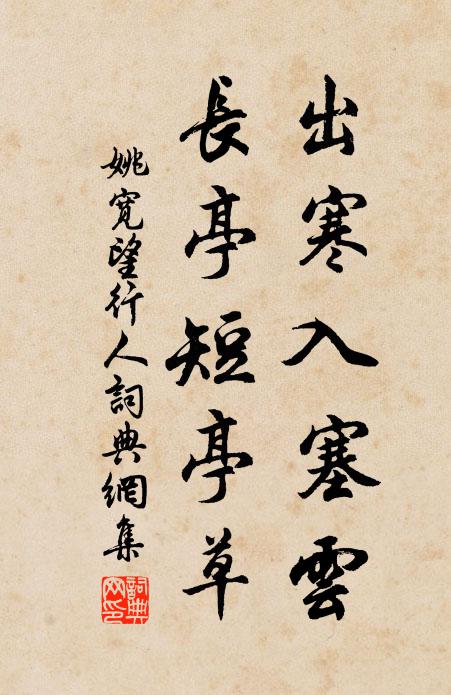 出寒入塞雲
長亭短亭草
姚寬望行人詞典網集
詞典
网印